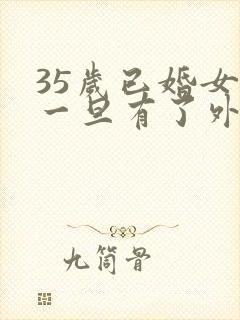 35岁已婚女
一旦有了外
九筒骨